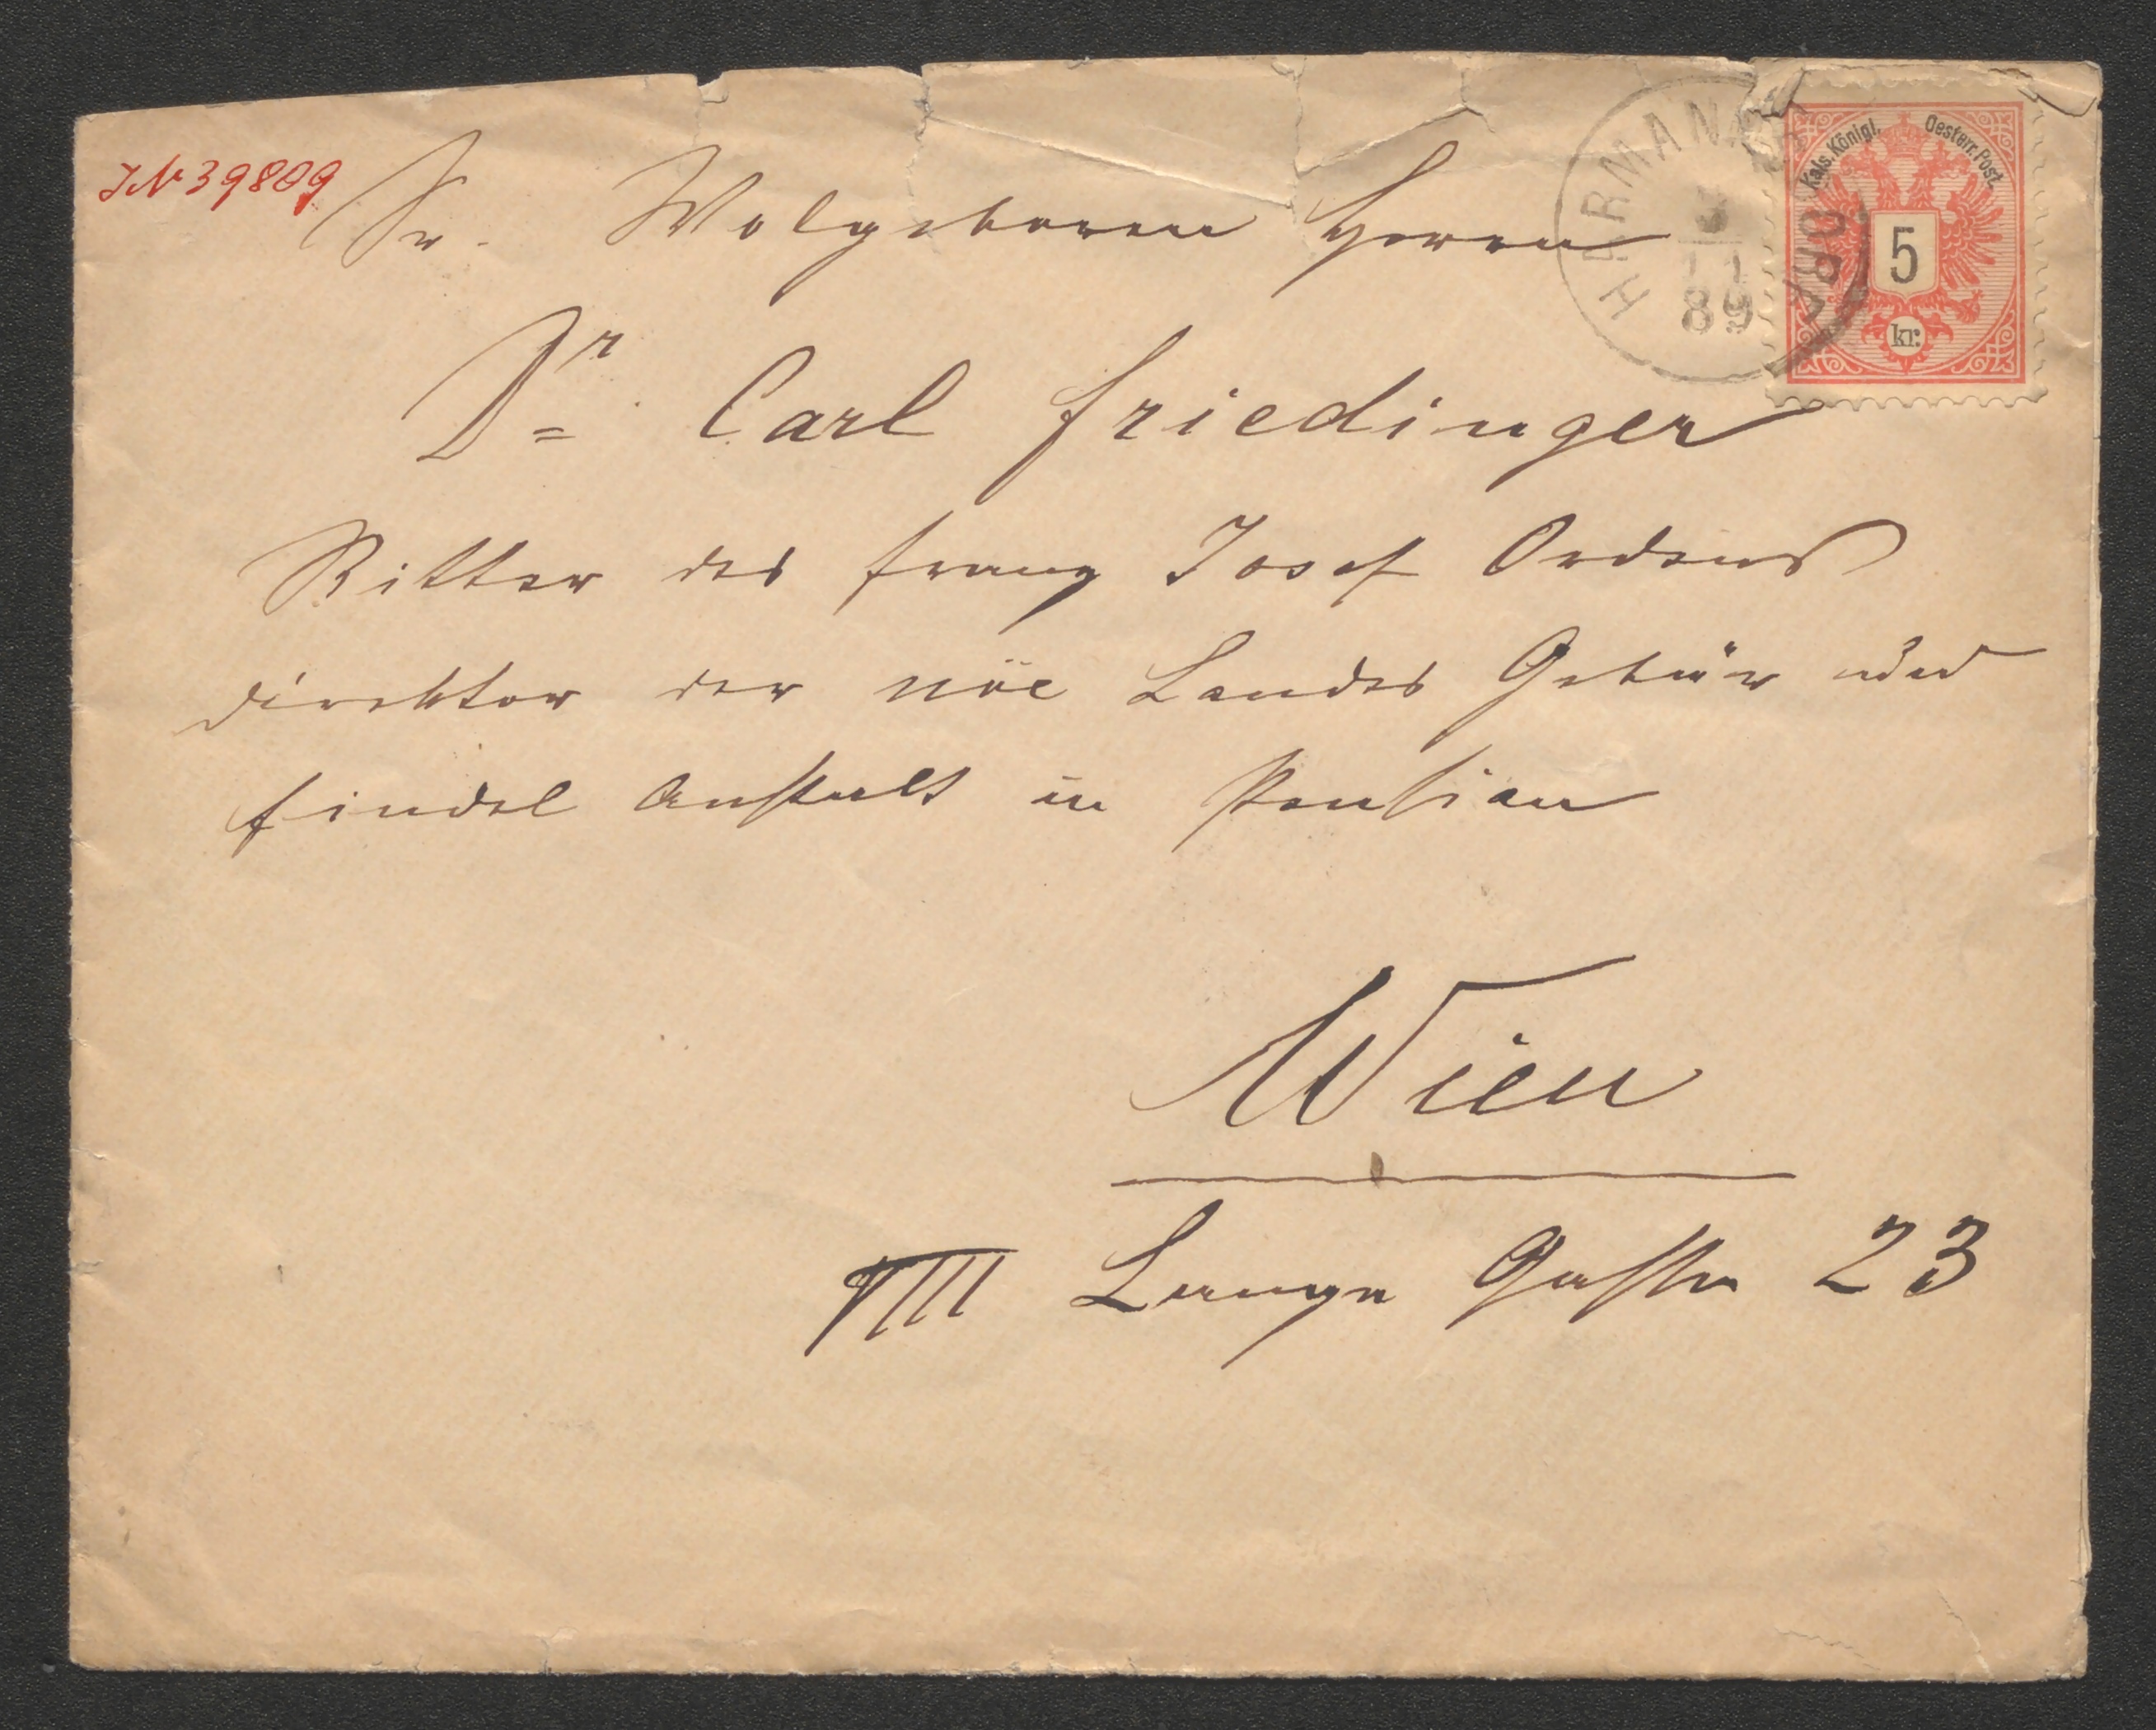 IN 39809
Sr. Wolgeboren Herrn
Dr. Carl Friedinger
Ritter des Franz Josef Ordens
Direktor der nöe Landes Gebär und
Findel Anstalt in Pension
Wien
VIII Lange Gasse 23
HERMANN DORF
11
89
Kais. Königl. Oesterr. Post.
5
kr.